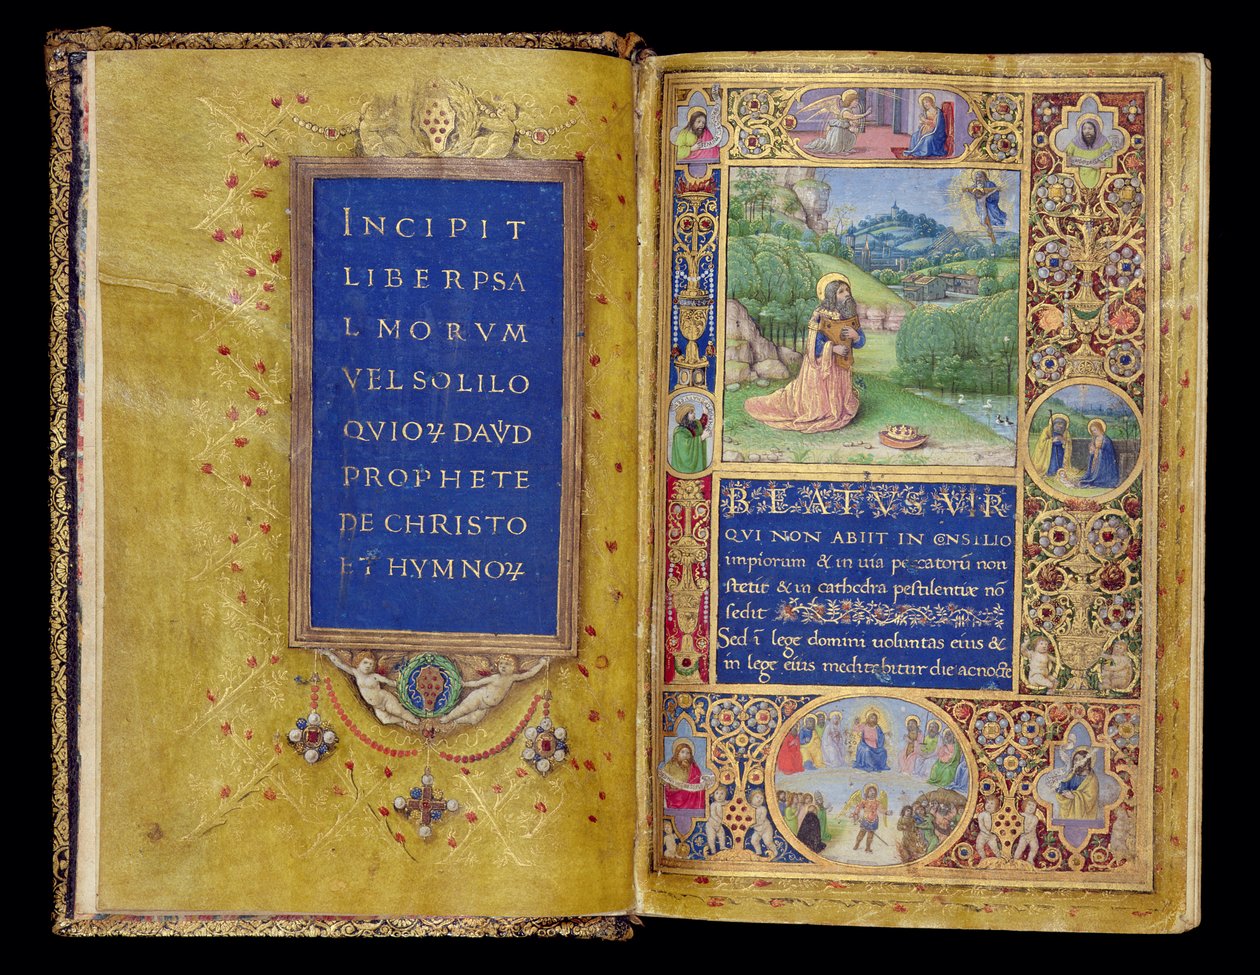 INCIPIT
LIBER PSA
LMORVM
VEL SOLILO
QVIOꝜ DAVID
PROPHETE
DE CHRISTO
ET HYMNOꝜ
BEATVS VIR
QVI NON ABIIT IN CONSILIO
impiorum & in uia peccatorū non
stetit & in cathedra pestilentiæ nō
sedit
Sed ī lege domini uoluntas eius &
in lege eius meditabitur die ac nocte